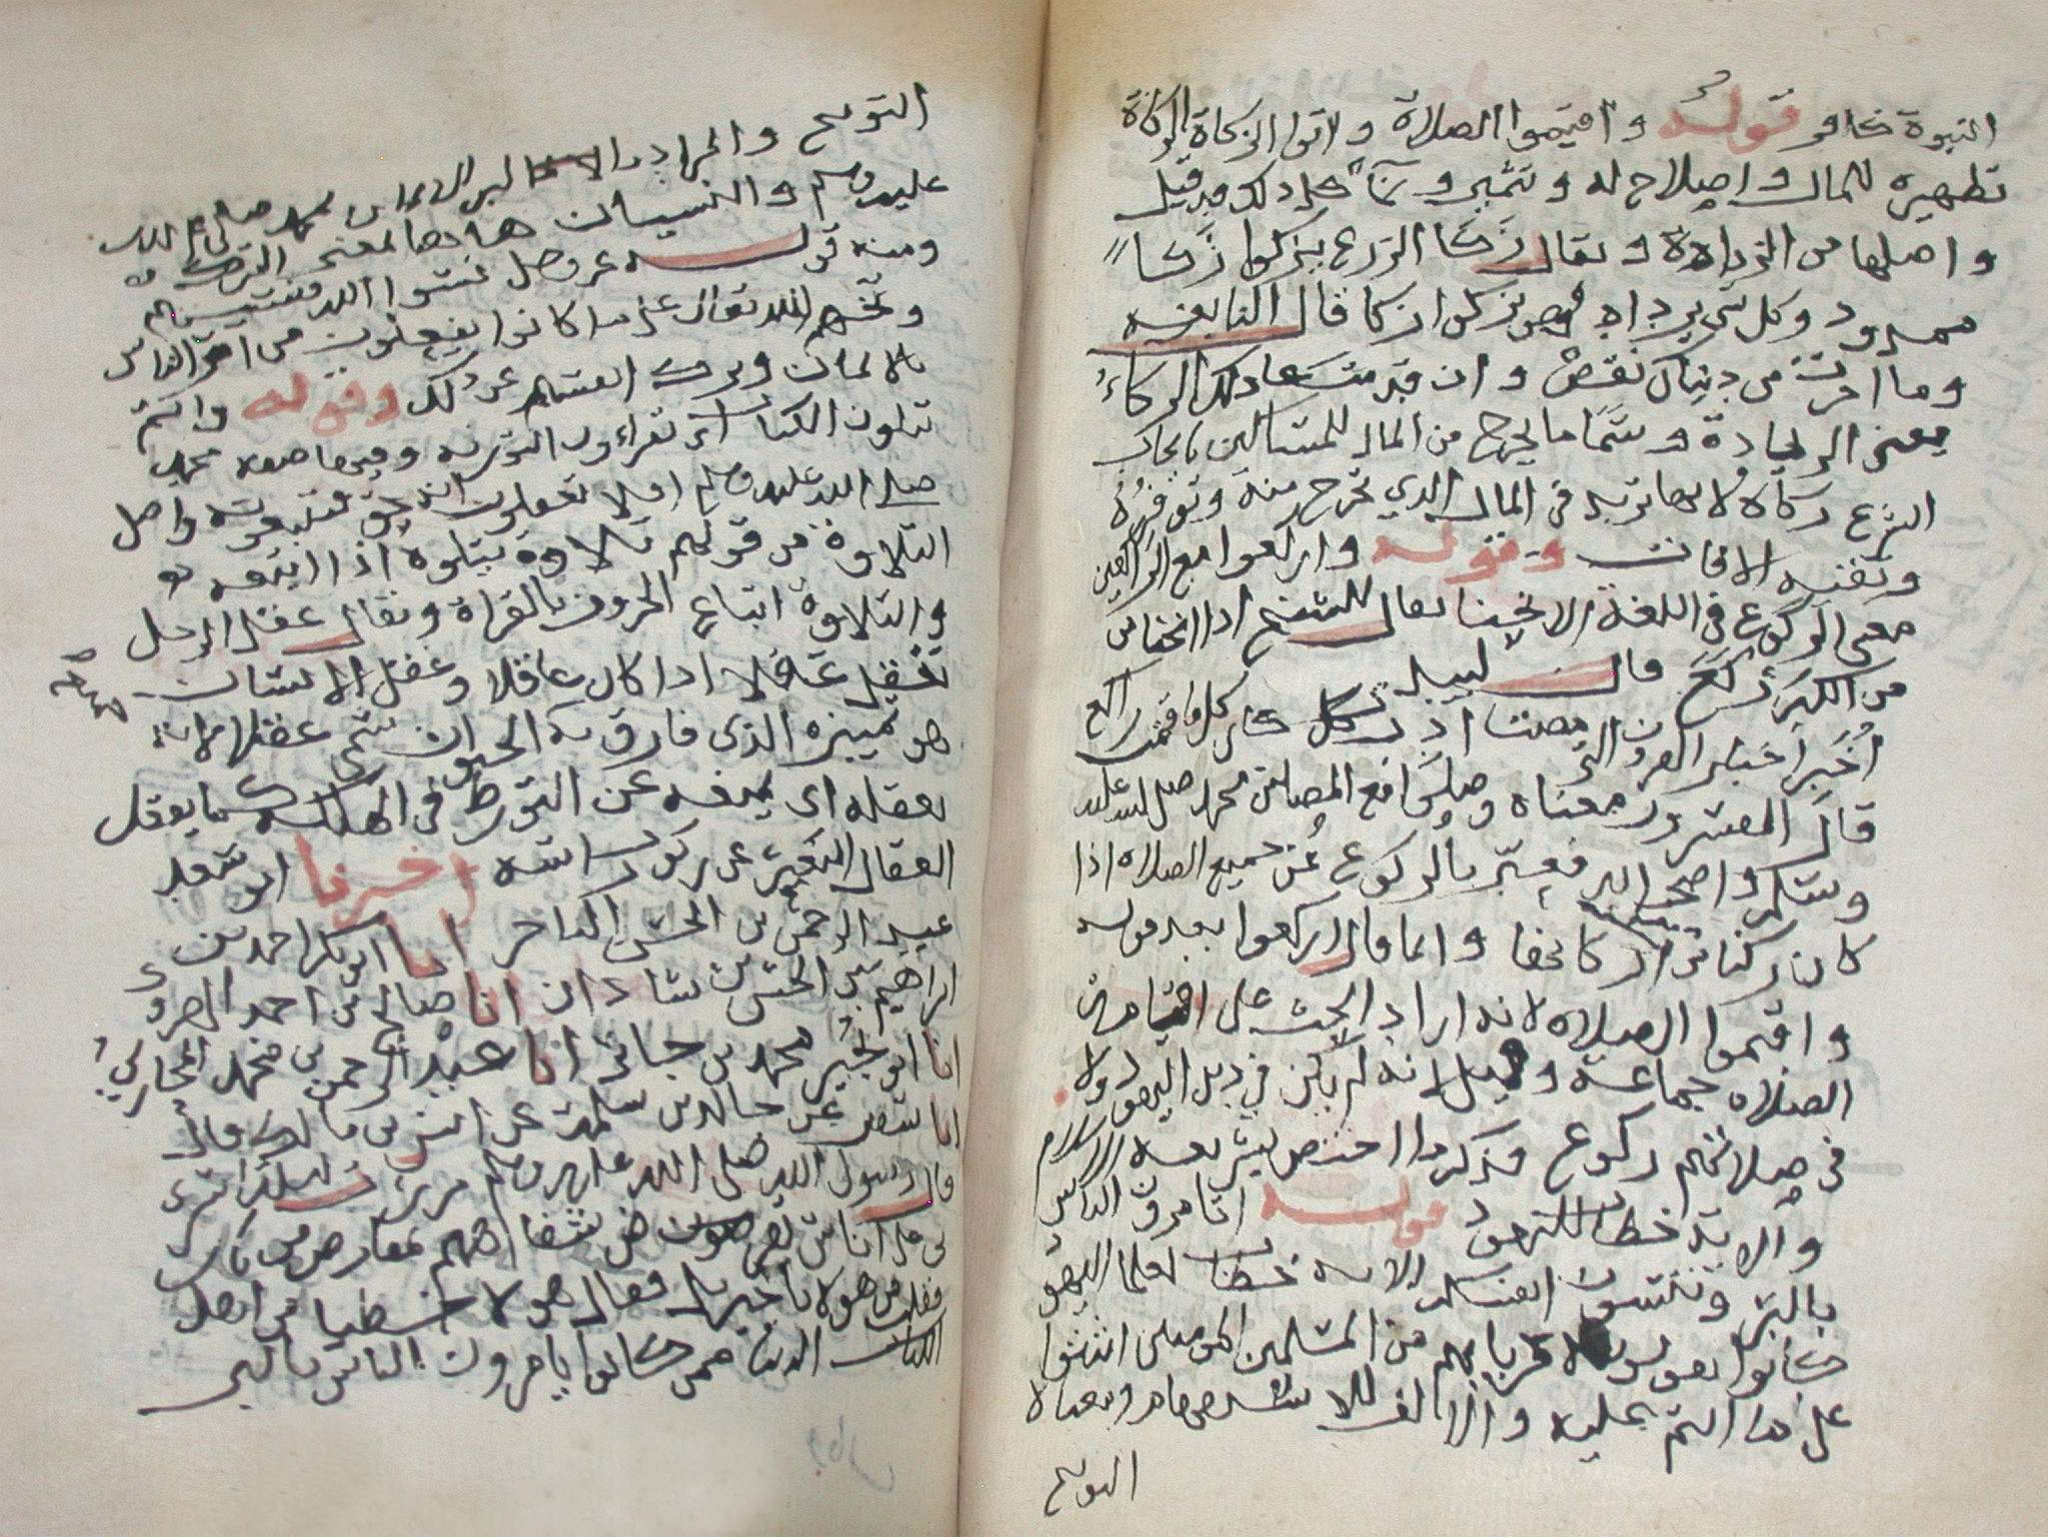 النبوة كافر قوله واقيموا الصلاة واتوا الزكاة الزكاة
تطهير للمال واصلاح له وتثمير ونمآ كل ذلك قد قيل
واصلها من الزيادة يقال زكا الزرع يزكوا زكآ
ممدود وكل شي يزداد فهو يزكوا زكا قال النابغه
وما اخرت من دنياك نقص وان قدمت عاد لك الزكاء
يعنى الزيادة وسمى ما يخرج من المال للمساكين بايجاب
الشرع زكاة لانها تزيد في المال الذي تخرج منه وتوفره
وتقيه الافات وقوله واركعوا مع الراكعين
معنى الركوع في اللغة الانحنا يقال للشيخ اذا انحنا
من الكبر ركع قال لبيد
اخبر اخبار القرون التى مضت ادب كانى كلما قمت راكع
قال المفسرون معناه وصلوا مع المصلين محمد صلى الله عليه
وسلم واصحابه فعبر بالركوع عن جميع الصلاه اذا
كان ركنا من اركانها وانما قال اركعوا بعد قوله
واقيموا الصلاه لانه اراد الحث على اقامة
الصلاه جماعة وقيل لانه لم يكن في دين اليهود ولا
في صلاتهم ركوع فذكر ما اختص بشريعه الاسلام
والاية خطاب لليهود قوله اتامرون الناس
بالبر وتنسون انفسكم الايه خطاب لعلما اليهود
كانوا يقولون لاقربايهم من المسلمين اثبتوا
على ما انتم عليه والالف للاستفهام ومعناه
التوبيخ
التوبيخ والمراد بالبر الايمان بمحمد صلى الله
عليه وسلم والنسيان هاهنا بمعنى الترك
ومنه قوله عز وجل نسوا الله فنسيهم
وبخهم الله تعالى على ما كانوا يفعلون من امر الناس
بالايمان وترك انفسهم عن ذلك وقوله وانتم
تتلون الكتاب اى تقراون التورية وفيها صفه محمد
صلى الله عليه وسلم افلا تعقلون انه حق فتتبعونه واصل
التلاوة من قولهم تلاه يتلوه اذا اتبعه
والتلاوة اتباع الحروف بالقراة ويقال عقل الرجل
يعقل عقلا اذا كان عاقلا وعقل الانسان
هو تمييزه الذى فارق به الحيوان سمى عقلا لانه
يعقله اى يمنعه عن التورط في الهلكه كما يعقل
العقال البعير عن ركوب راسه اخبرنا ابو سعد
عبد الرحمن بن الحسن التاجر انا ابو بكر احمد بن
ابراهيم بن الحسن بن شاذان انا صالح بن احمد الهروى
انا ابو بجير محمد بن جابر انا عبد الرحمن بن محمد المحاربي
انا عن خالد بن سلمة عن انس بن مالك قال
قال رسول الله صلى الله عليه وسلم مررت ليلة اسرى
بى على اناس تقرض شفاههم بمقارض من نار
فقلت من هولا يا جبريل فقال هولا خطبا من اهل
الدنيا ممن كانوا يامرون الناس بالبر